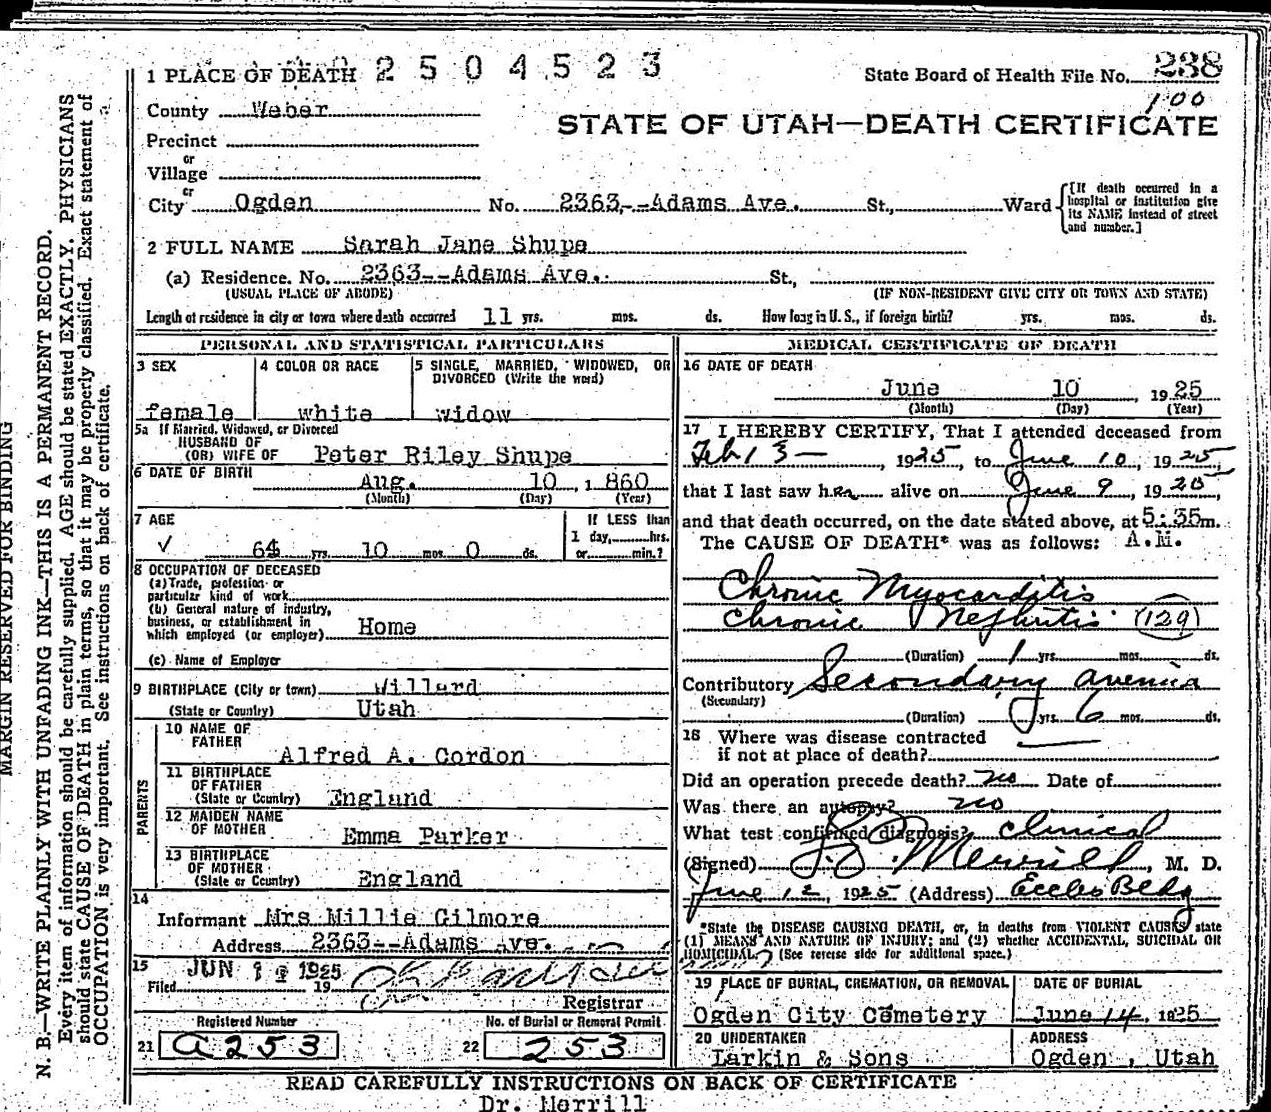 1 PLACE OF DEATH 2 5 0 4 5 2 3
State Board of Health File No. 238
100
County Weber
STATE OF UTAH—DEATH CERTIFICATE
Precinct
or
Village
or
City Ogden No. 2363--Adams Ave. St., Ward {[If death occurred in a hospital or institution give its NAME instead of street and number.]
2 FULL NAME Sarah Jane Shupe
(a) Residence. No. 2363--Adams Ave. St.,
(USUAL PLACE OF ABODE) (IF NON-RESIDENT GIVE CITY OR TOWN AND STATE)
Length of residence in city or town where death occurred 11 yrs. mos. ds. How long in U. S., if foreign birth? yrs. mos. ds.
PERSONAL AND STATISTICAL PARTICULARS
3 SEX
female
4 COLOR OR RACE
white
5 SINGLE, MARRIED, WIDOWED, OR
DIVORCED (Write the word)
widow
5a If Married, Widowed, or Divorced
HUSBAND OF
(OR) WIFE OF Peter Riley Shupe
6 DATE OF BIRTH Aug. 10, 1860
(Month) (Day) (Year)
7 AGE
64 yrs. 10 mos. 0 ds.
If LESS than
1 day, hrs.
or min.?
8 OCCUPATION OF DECEASED
(a) Trade, profession or
particular kind of work
(b) General nature of industry,
business, or establishment in
which employed (or employer) Home
(c) Name of Employer
9 BIRTHPLACE (City or town) Willard
(State or Country) Utah
PARENTS
10 NAME OF
FATHER
Alfred A. Gordon
11 BIRTHPLACE
OF FATHER
(State or Country) England
12 MAIDEN NAME
OF MOTHER Emma Parker
13 BIRTHPLACE
OF MOTHER
(State or Country) England
14
Informant Mrs Millie Gilmore
Address 2363--Adams Ave.
15
Filed JUN 1925 19
Registrar
Registered Number
21 a253
No. of Burial or Removal Permit
22 253
MEDICAL CERTIFICATE OF DEATH
16 DATE OF DEATH
June 10 1925
(Month) (Day) (Year)
17 I HEREBY CERTIFY, That I attended deceased from
Feb 13 —, 1925, to June 10, 1925,
that I last saw her alive on June 9, 1925,
and that death occurred, on the date stated above, at 5:35m.
The CAUSE OF DEATH* was as follows: A.M.
Chronic Myocarditis
Chronic Nephritis (129)
(Duration) 1 yrs. mos. ds.
Contributory Secondary anemia
(Secondary)
(Duration) yrs. 6 mos. ds.
18 Where was disease contracted
if not at place of death?
Did an operation precede death? no Date of
Was there an autopsy? no
What test confirmed diagnosis? clinical
(Signed) Merrill, M. D.
June 12 1925 (Address) Eccles Bldg
*State the DISEASE CAUSING DEATH, or, in deaths from VIOLENT CAUSES state
(1) MEANS AND NATURE OF INJURY; and (2) whether ACCIDENTAL, SUICIDAL OR
HOMICIDAL. (See reverse side for additional space.)
19 PLACE OF BURIAL, CREMATION, OR REMOVAL
Ogden City Cemetery
DATE OF BURIAL
June 14, 1925
20 UNDERTAKER
Larkin & Sons
ADDRESS
Ogden, Utah
READ CAREFULLY INSTRUCTIONS ON BACK OF CERTIFICATE
Dr. Merrill
MARGIN RESERVED FOR BINDING
N. B.—WRITE PLAINLY WITH UNFADING INK—THIS IS A PERMANENT RECORD.
Every item of information should be carefully supplied. AGE should be stated EXACTLY. PHYSICIANS
should state CAUSE OF DEATH in plain terms, so that it may be properly classified. Exact statement of
OCCUPATION is very important. See instructions on back of certificate.